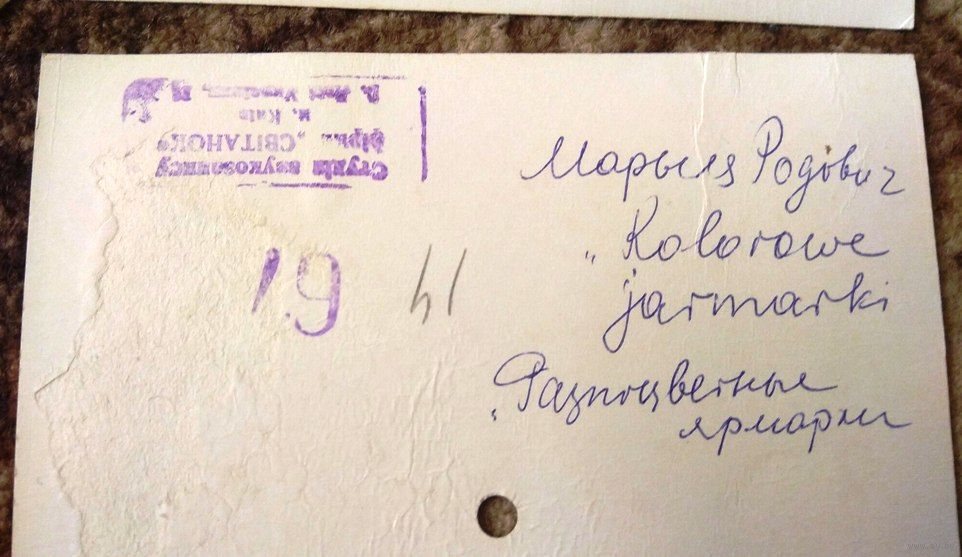 Студія звукозапису
фірми „СВІТАНОК“
м. Київ
19
14
Марыля Родович
„Kolorowe
jarmarki
„Разноцветные
ярмарки